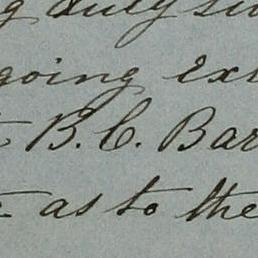 g duly sw
going ex
B. C. Bar
as to the